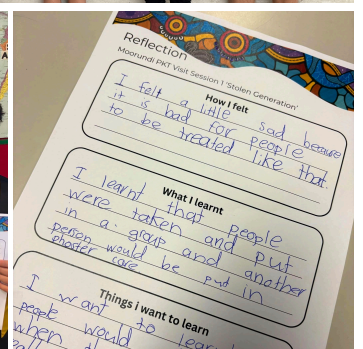 Reflection
Moorundi PKT Visit Session 1 'Stolen Generation'
How I felt
I felt a little sad because
it is bad for people
to be treated like that.
What I learnt
I learnt that people
were taken and put
in a group and another
person would be put in
phoster care
Things i want to learn
I want to lear
people would
when